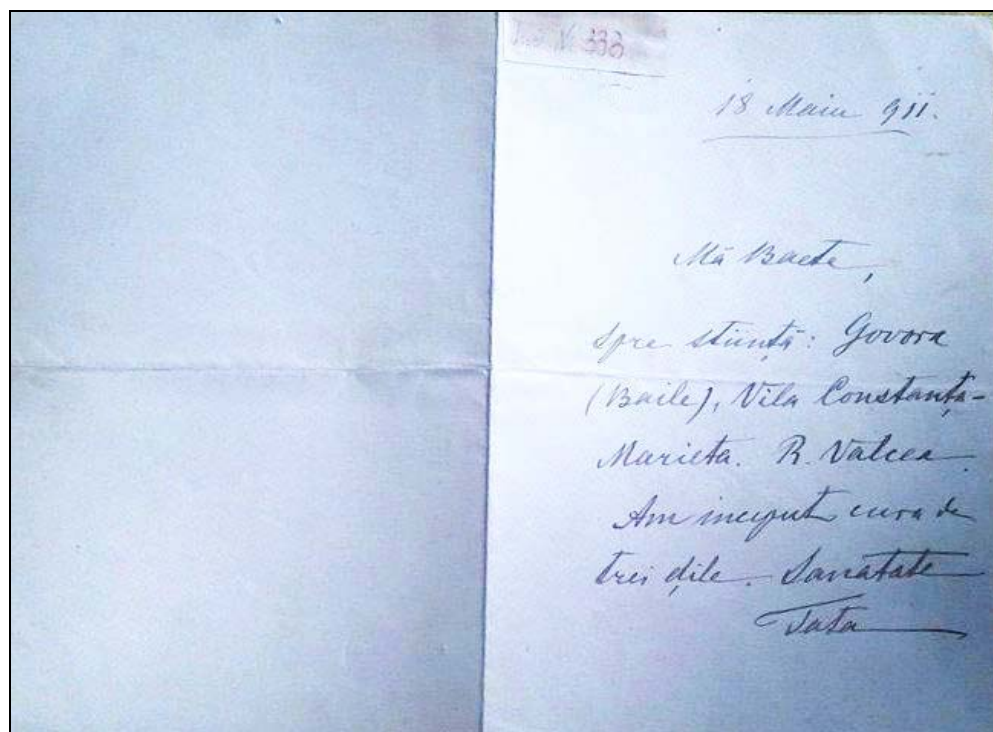 Inv. N. 333
18 Maiu 911.
Mă Baete,
spre stiință: Govora
(Baile), Vila Constanța-
Marieta. R. Valcea.
Am inceput cura de
trei dile. Sanatate
Tata